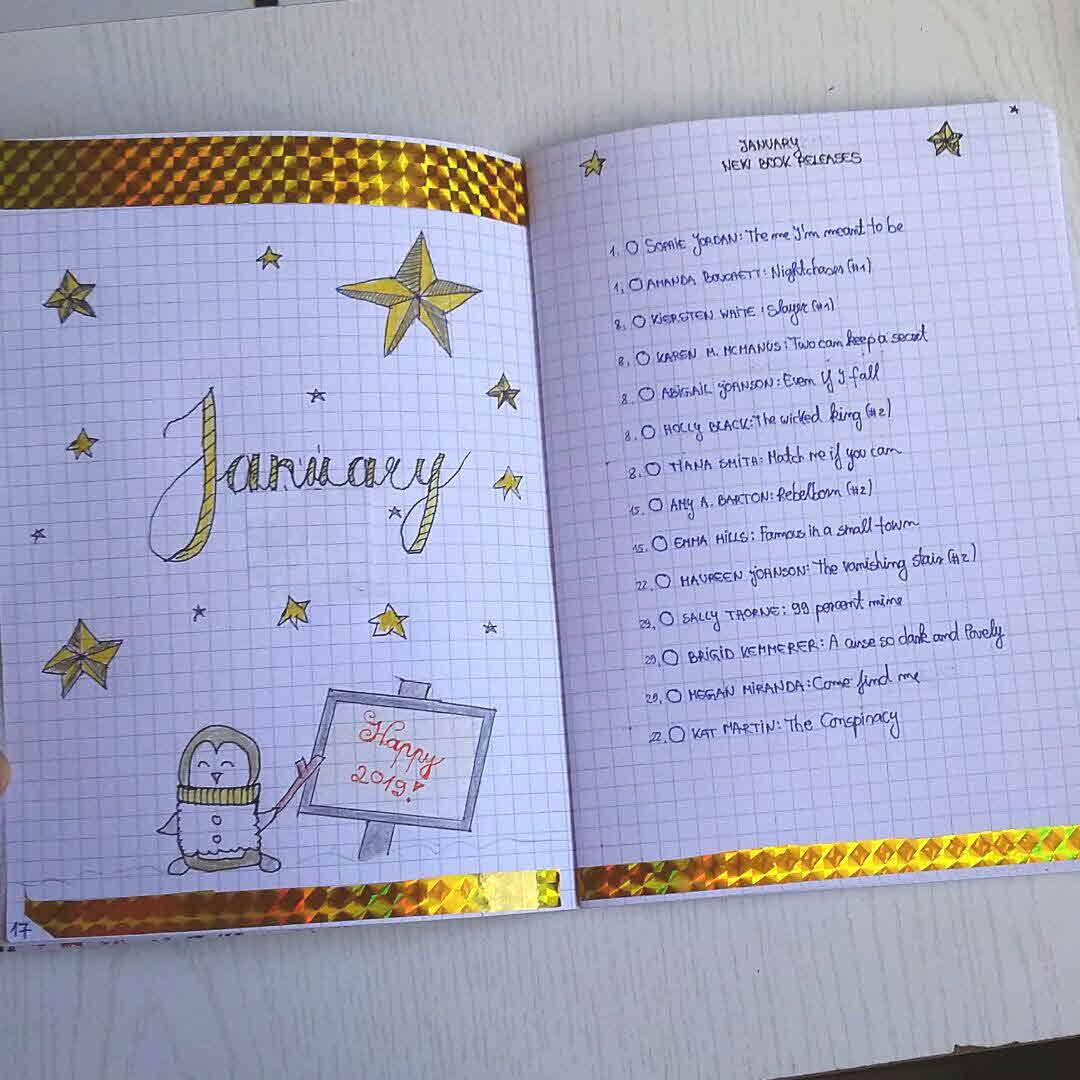 January
Happy
2019!
17
JANUARY
NEW BOOK RELEASES
1. O SOPHIE JORDAN: The me I'm meant to be
1. O AMANDA BOUCHETT: Nightchaser (#1)
8. O KIERSTEN WHITE: Slayer (#1)
8. O KAREN M. MCMANUS: Two can keep a secret
8. O ABIGAIL JOHNSON: Even if I fall
8. O HOLLY BLACK: The wicked king (#2)
8. O TIANA SMITH: Match me if you can
15. O AMY A. BARTON: Rebelborn (#2)
15. O EMMA MILLS: Famous in a small town
22. O MAUREEN JOHNSON: The vanishing stair (#2)
29. O SALLY THORNE: 99 percent mine
29. O BRIGID KEMMERER: A curse so dark and lovely
29. O MEGAN MIRANDA: Come find me
22. O KAT MARTIN: The Conspiracy